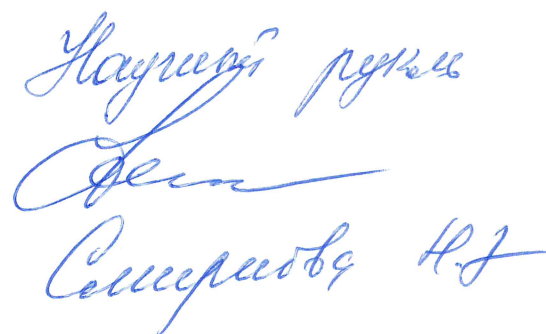 Научный руков
Смирнова Н.З